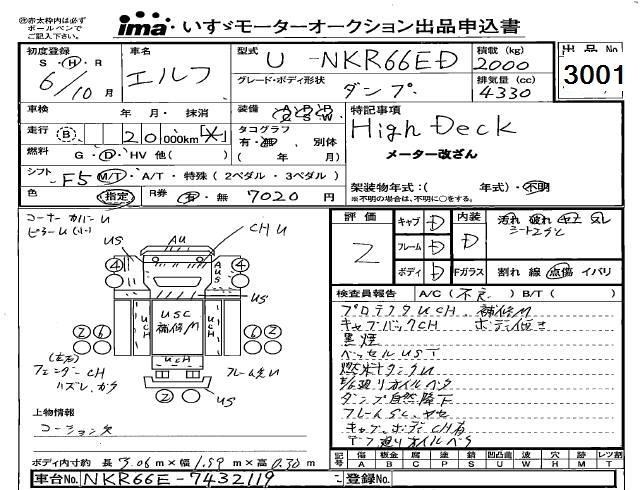 ㊟赤太枠内は必ず
ボールペンで
ご記入下さい。
ima・いすゞモーターオークション出品申込書
初度登録
S・H・R
6/10月
車名
エルフ
型式
U-NKR66ED
積載 (kg)
2000
グレード・ボディ形状
ダンプ
排気量 (cc)
4330
出品No
3001
車検 年・月・抹消
装備
走行 B 20000km
燃料 G・D・HV 他( )
タコグラフ
有・無 別体
( 年 月)
特記事項
High Deck
メーター改ざん
シフト F5 M/T・A/T・特殊(2ペダル・3ペダル)
色 指定
R券 有・無 7020円
架装物年式:( 年式)・不明
※不明の場合は、不明に○をする。
コーナーカバーU
ピラーU(小)
US
AU
CHU
4
4
AUS
UCH
USC
補修M
UCH
US
2
6
6
2
UCH
(左右)
フェンダーCH
ハズレ、カケ
フレーム欠い
2
US
上物情報
コーション欠
ボディ内寸約 長3.06m×幅1.59m×高0.30m
車台No. NKR66E-7432119
評価
2
キャブ D
フレーム D
ボディ D
内装
D
汚れ 破れ ヤケ スレ
Fガラス 割れ 線 点傷 イバリ
検査員報告 A/C(不良)B/T( )
プロテクタUCH、補修M
キャブバックCH
黒煙
ベッセルUST
燃料タンクU
ダンプ自然降下
キャブ、ボディCH有
記号 傷 板金 腐 塗 錆 凹凸凹 波 穴 跡 レツ割
A B C P S U W H M T
会員登録No.